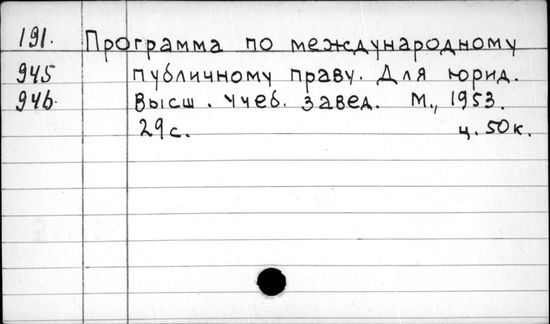 191. Программа по международному
945 публичному праву. Для юрид.
946. Высш. учеб. завед. М., 1953.
29с. ц. 50к.